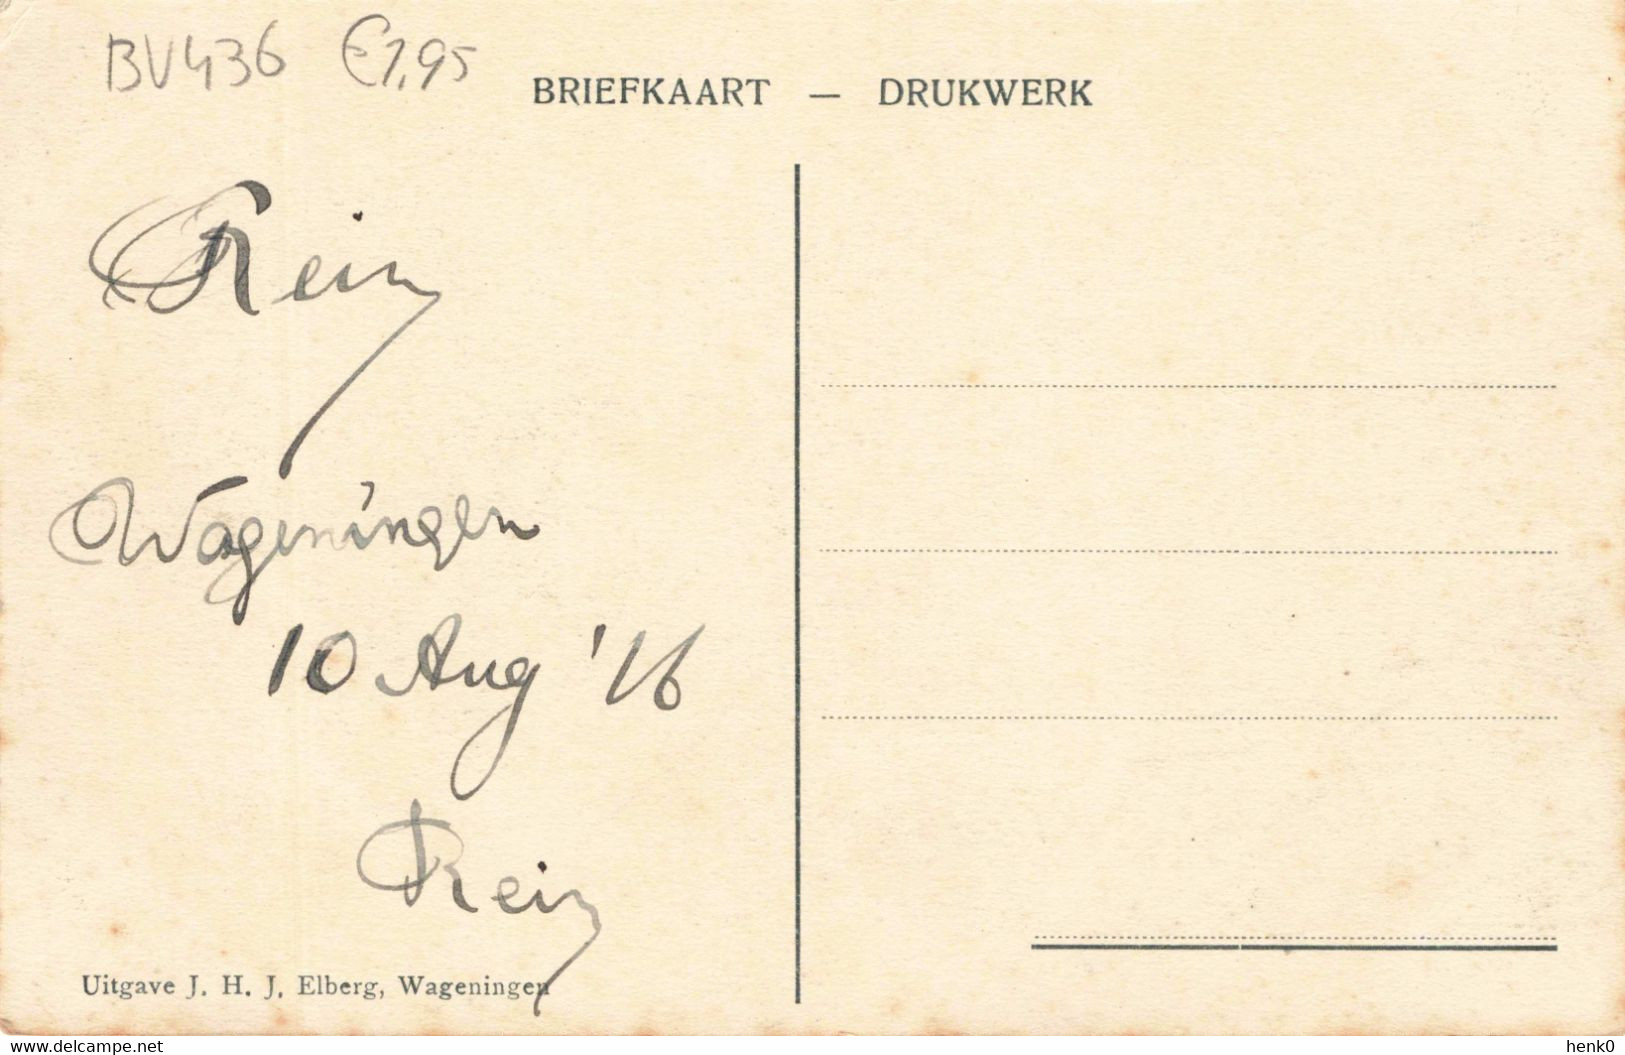 BV436 €1,95
BRIEFKAART — DRUKWERK
Rein
Wageningen
10 Aug '16
Rein
Uitgave J. H. J. Elberg, Wageningen
www.delcampe.net
henk0